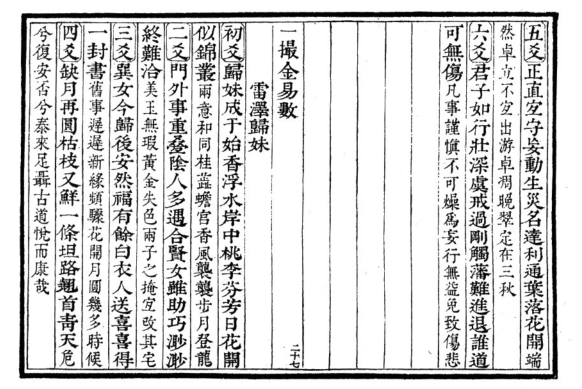 五爻正直宜守妄動生災名達利通葉落花開端
然卓立不宜出游卓稠晚翠定在三秋
六爻君子如行壯深虞戒過剛觸藩難進退誰道
可無傷凡事謹慎不可燥爲妄行無益免致傷悲
一撮金易數
雷澤歸妹
初爻歸妹成于始香浮水岸中桃李芬芳日花開
似錦叢兩意和同桂蕋蟾宫香風襲襲步月登龍
二爻門外事重疊陰人多遇合賢女雖助巧渺渺
終難洽美玉無瑕黃金失色兩子之掩宜改其宅
三爻巽女今歸後安然福有餘白衣人送喜喜得
一封書舊事遲遲新緣頻驟花開月圓幾多時候
四爻缺月再圓枯枝又鮮一條坦路翹首靑天危
兮復安否兮泰來足聶古道悅而康哉
二十七